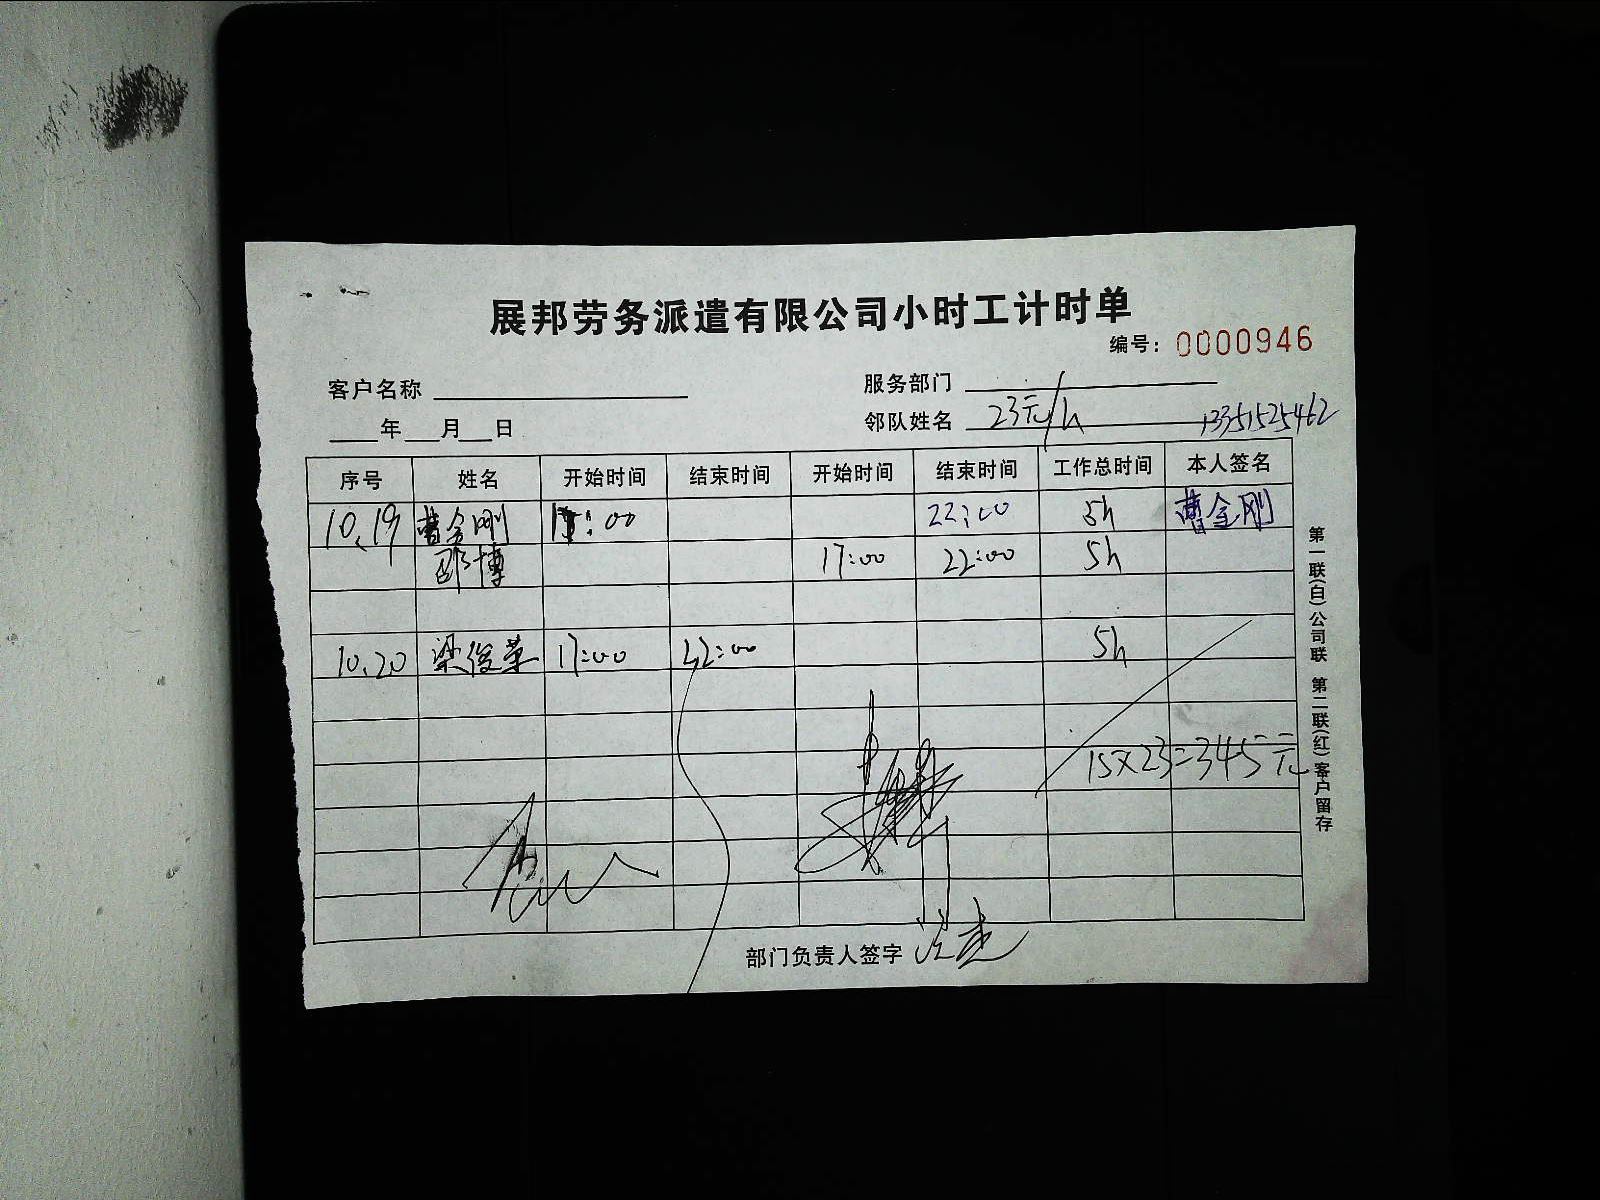 展邦劳务派遣有限公司小时工计时单
编号：0000946
客户名称 服务部门
年 月 日 邻队姓名 23元/h 13351525462
序号 姓名 开始时间 结束时间 开始时间 结束时间 工作总时间 本人签名
10.19 曹金刚 17:00 22:00 5h 曹金刚
邵博 17:00 22:00 5h
10.20 梁俊革 17:00 22:00 5h
15×23=345元
部门负责人签字
第一联(白)公司联 第二联(红)客户留存